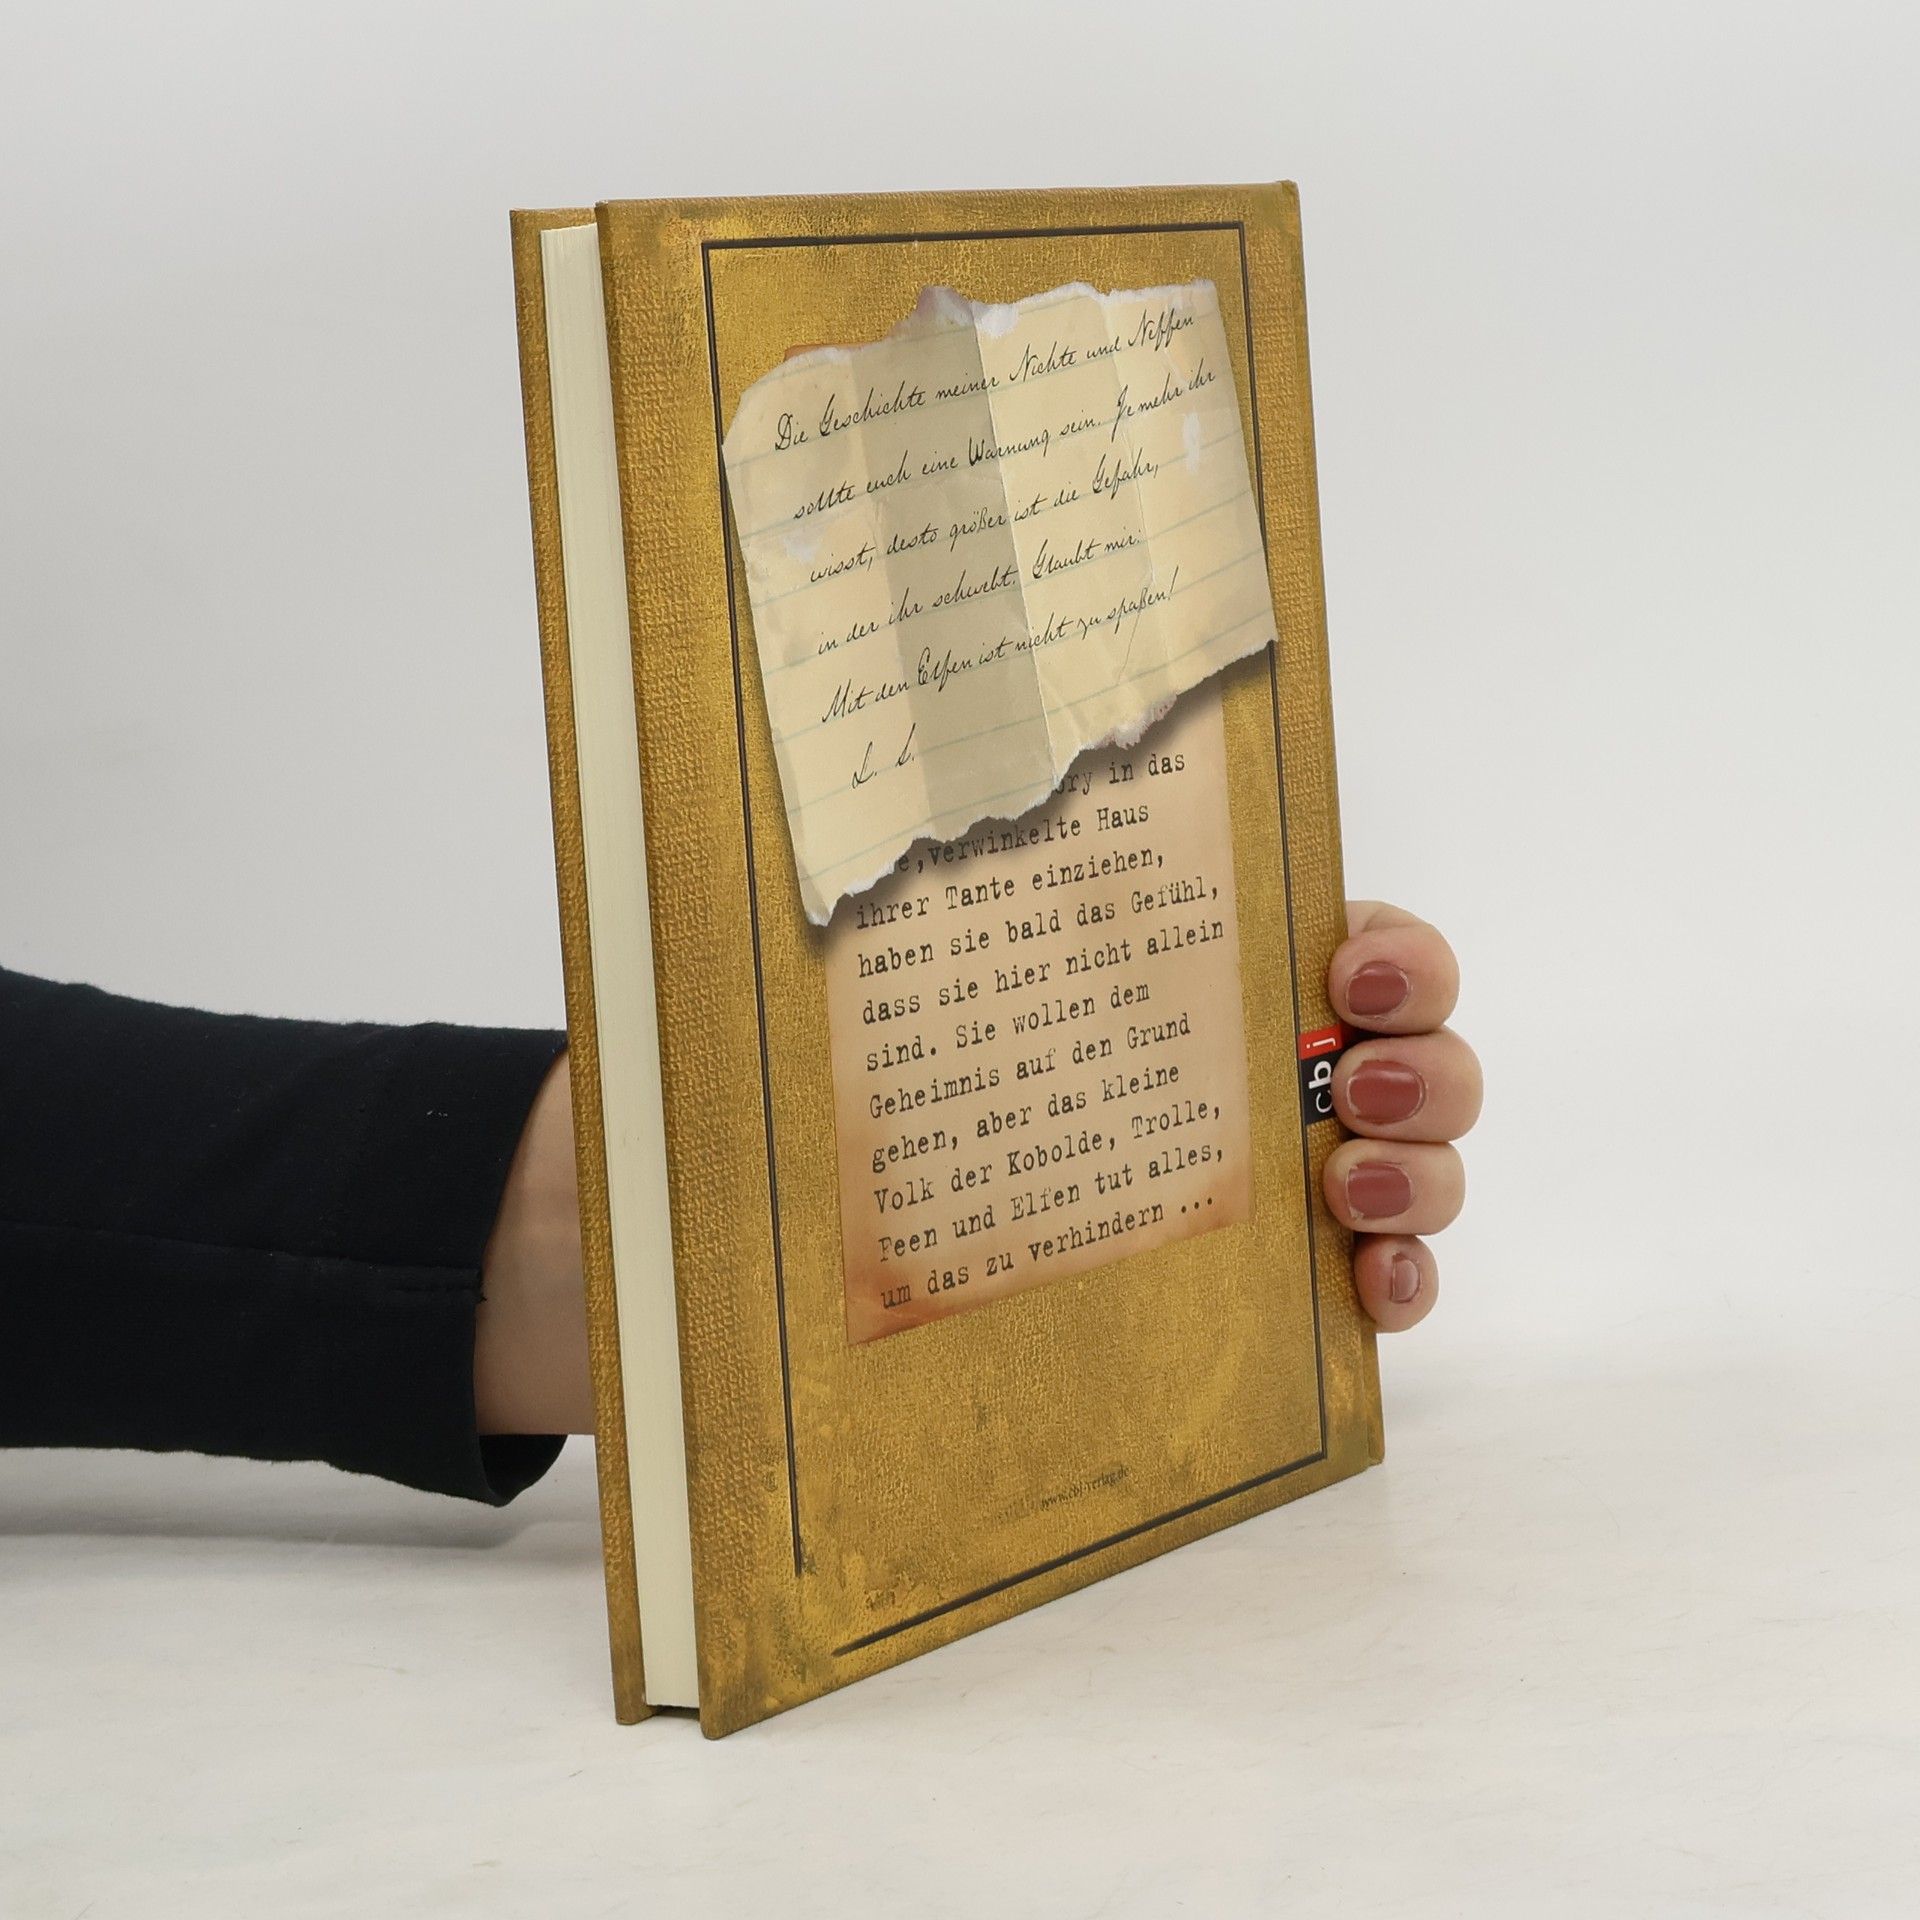 Die Geschichte meiner Nichte und Neffen
sollte euch eine Warnung sein. Je mehr ihr
wisst, desto größer ist die Gefahr,
in der ihr schwebt. Glaubt mir:
Mit den Elfen ist nicht zu spaßen!
L. L.
ory in das
e, verwinkelte Haus
ihrer Tante einziehen,
haben sie bald das Gefühl,
dass sie hier nicht allein
sind. Sie wollen dem
Geheimnis auf den Grund
gehen, aber das kleine
Volk der Kobolde, Trolle,
Feen und Elfen tut alles,
um das zu verhindern ...
www.cbj-verlag.de
cbj